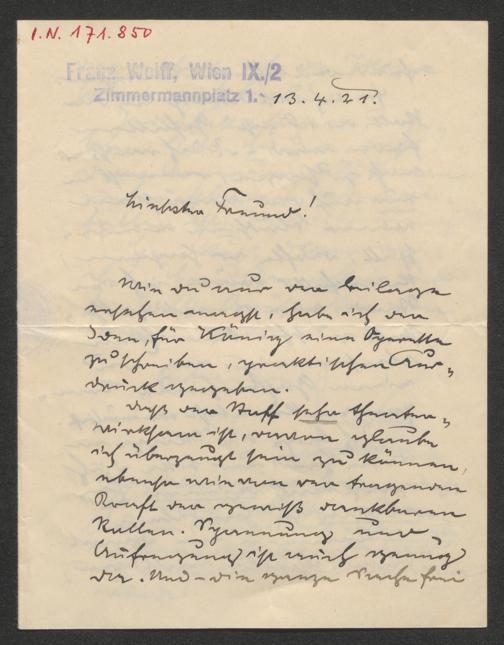 I.N. 171.850
Franz Wolff, Wien IX./2
Zimmermannplatz 1.
13.4.21.
Liebster Freund!
Wie du aus der Beilage
ersehen magst, habe ich der
Idee, für König eine Operette
zu schreiben, praktischen Aus-
druck gegeben.
Daß der Stoff sehr theater-
wirksam ist, davon glaube
ich überzeugt sein zu können,
ebenso wie von der tragenden
Kraft der gewiß dankbaren
Rollen. Spannung und
Aufregung ist auch genug
da. Und – die ganze Sache frei